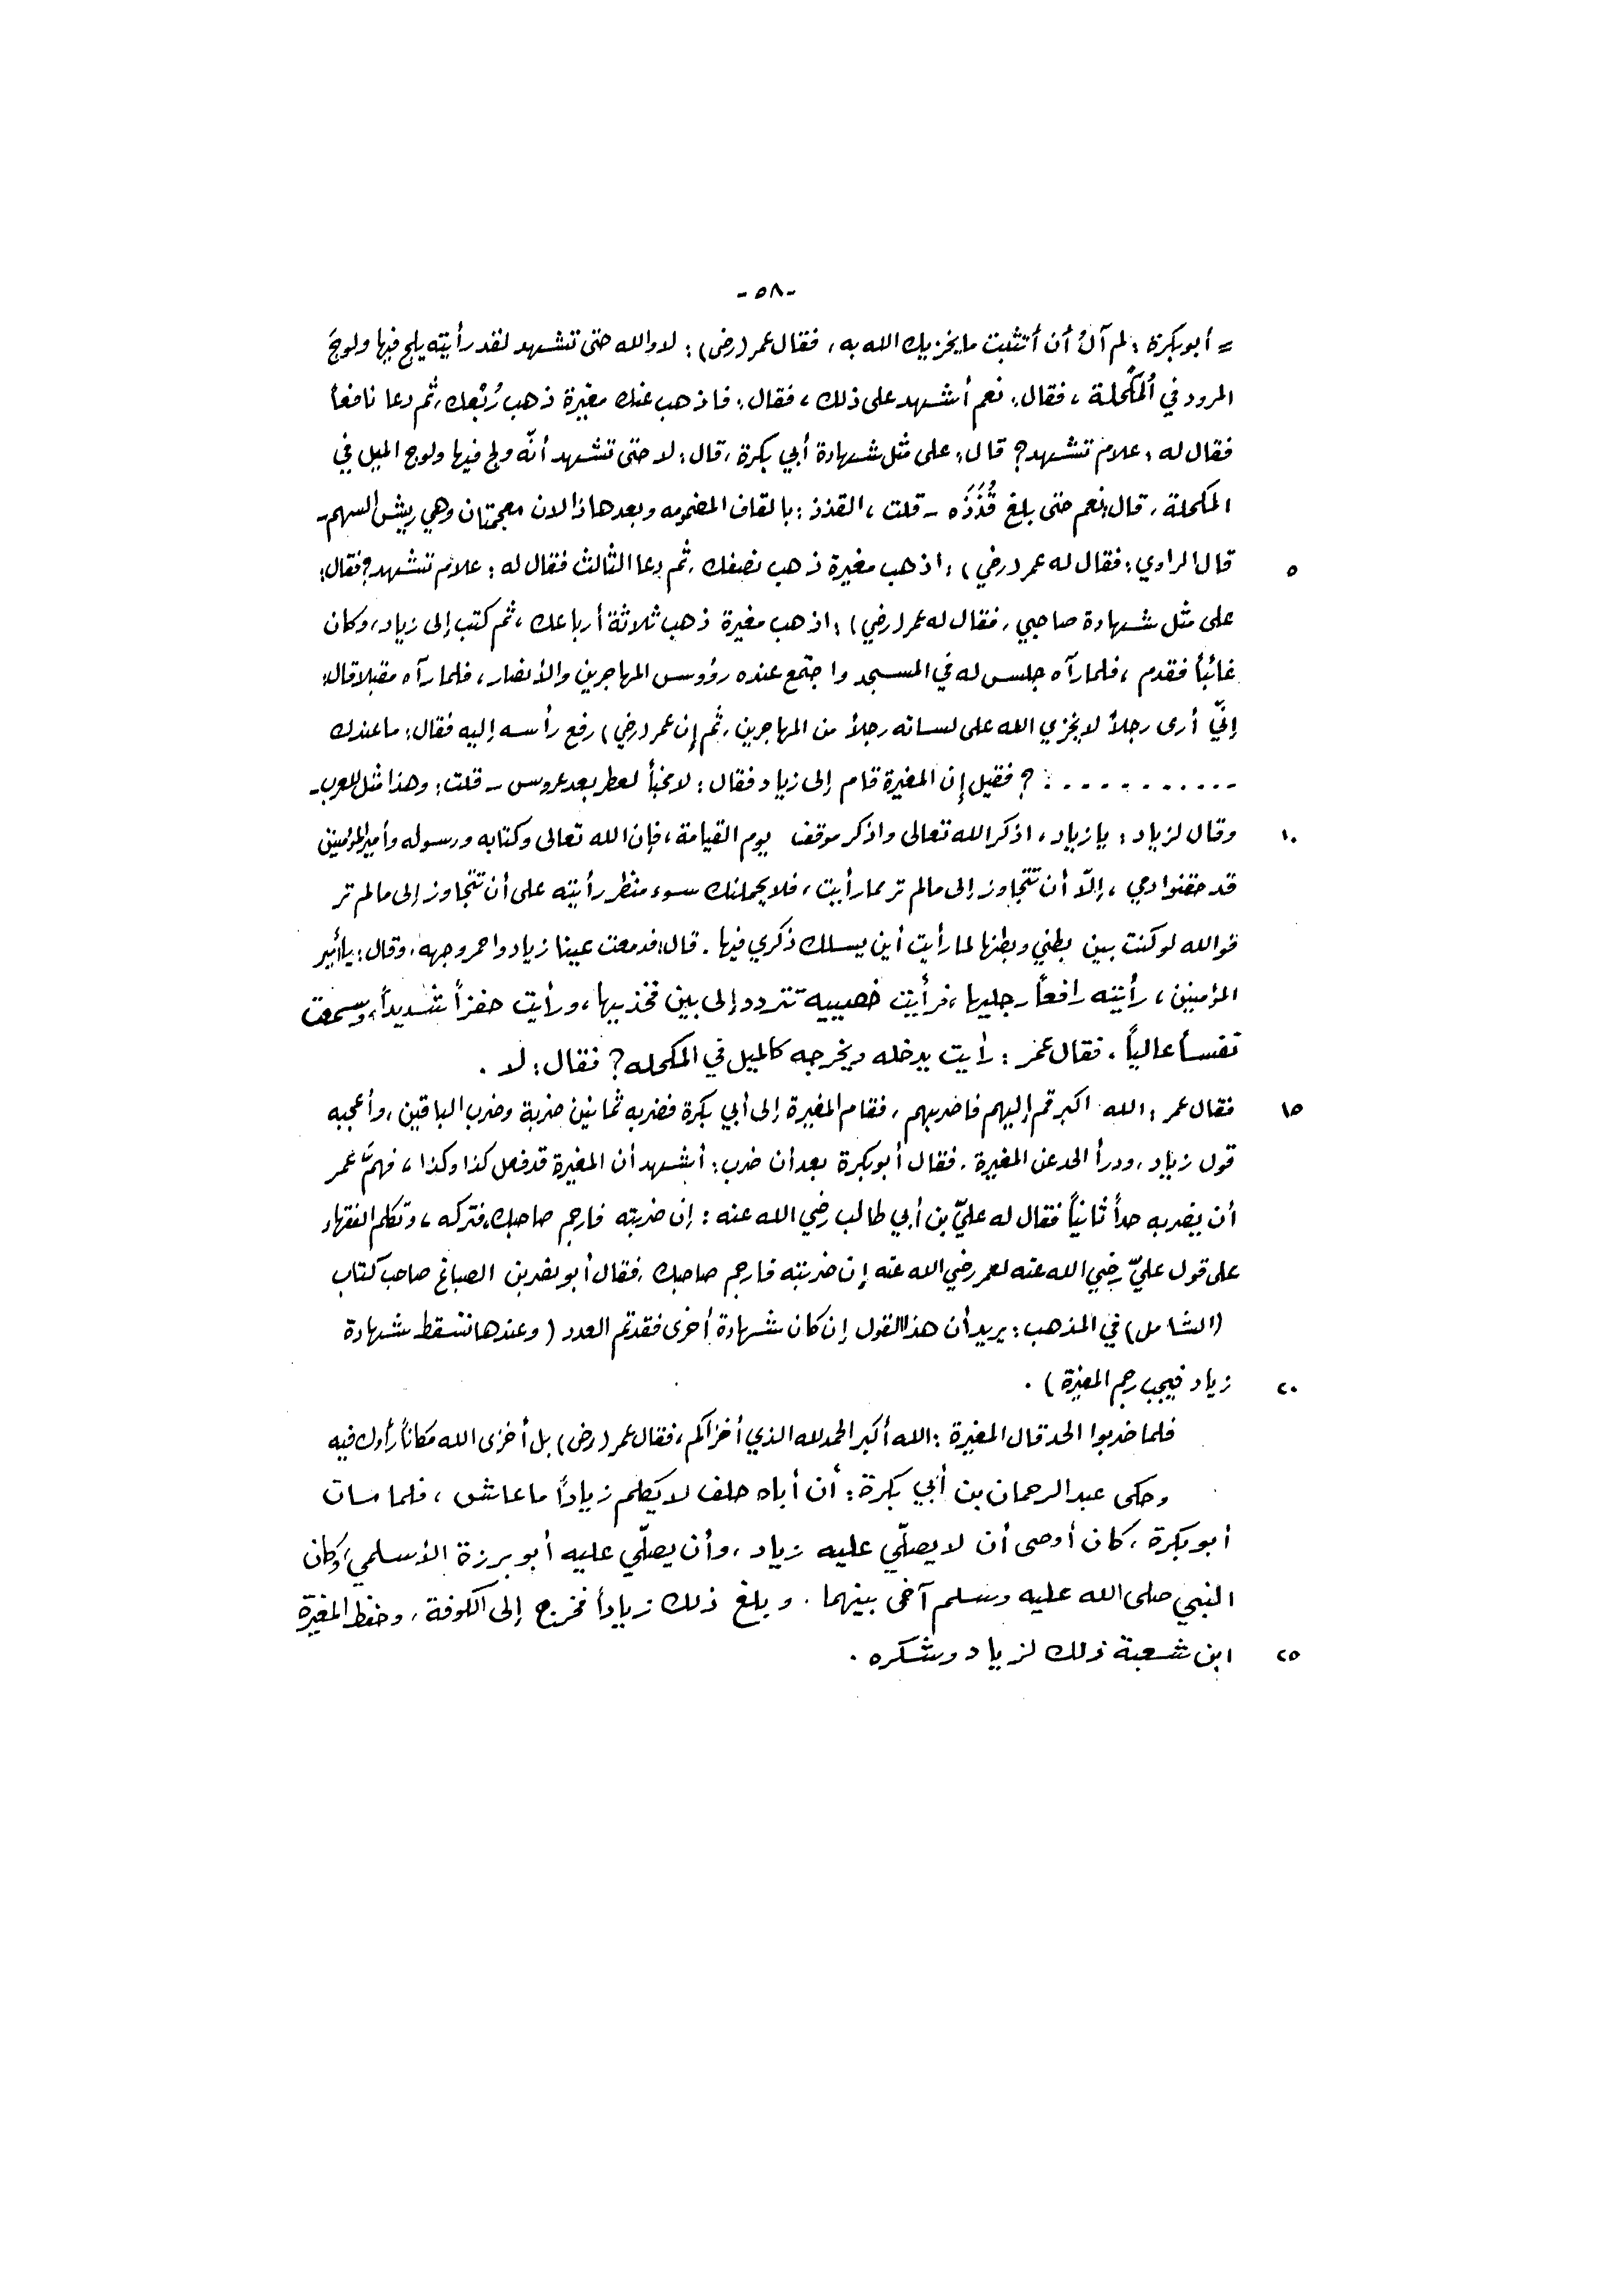 -٥٨-
= أبو بكرة : لم آلُ أن أتثبت ما يخزيك الله به ، فقال عمر (رض) : لا والله حتى تشهد لقد رأيته يلج فيها ولوجَ
المرود في المُكْحُلة ، فقال : نعم أشهد على ذلك ، فقال : فاذهب عنك مغيرة ذهب رُبْعك ، ثم دعا نافعاً
فقال له : علام تشهد ؟ قال : على مثل شهادة أبي بكرة ، قال : لا حتى تشهد أنّه ولج فيها ولوج الميل في
المكحلة ، قال : نعم حتى بلغ قُذَذَه - قلت ، القذذ : بالقاف المضمومه وبعدها ذالان معجمتان وهي ريش السهم -
٥ قال الراوي : فقال له عمر (رضي) : اذهب مغيرة ذهب نصفك ، ثم دعا الثالث فقال له : علام تشهد ؟ فقال :
على مثل شهادة صاحبي ، فقال له عمر (رضي) : اذهب مغيرة ذهب ثلاثة أرباعك ، ثم كتب إلى زياد ، وكان
غائباً فقدم ، فلما رآه جلس له في المسجد واجتمع عنده رؤوس المهاجرين والأنصار ، فلما رآه مقبلا قال :
إنّي أرى رجلاً لا يخزي الله على لسانه رجلاً من المهاجرين ، ثم إن عمر (رضي) رفع رأسه إليه فقال : ما عندك
. . . . . . . . . . . ؟ فقيل إن المغيرة قام إلى زياد فقال : لا مخبأ لعطر بعد عروس - قلت : وهذا مثل للعرب -
١٠ وقال لزياد : يا زياد ، اذكر الله تعالى واذكر موقف يوم القيامة ، فإن الله تعالى وكتابه ورسوله وأمير المؤمنين
قد حقنوا دمي ، إلّا أن تتجاوز إلى مالم تر مما رأيت ، فلا يحملنك سوء منظر رأيته على أن تتجاوز إلى مالم تر
فوالله لو كنت بين بطني وبطنها لما رأيت أين يسلك ذكري فيها . قال : فدمعت عينا زياد واحمر وجهه ، وقال : يا أمير
المؤمنين ، رأيته رافعاً رجليها ، فرأيت خصييه تتردد إلى بين فخذيها ، ورأيت حفزاً شديداً ، وسمعت
نفساً عالياً . فقال عمر : رأيت يدخله ويخرجه كالميل في المكحله ؟ فقال : لا .
١٥ فقال عمر : الله اكبر قم إليهم فاضربهم ، فقام المغيرة إلى أبي بكرة فضربه ثمانين ضربة وضرب الباقين ، وأعجبه
قول زياد ، ودرأ الحد عن المغيرة . فقال أبو بكرة بعد أن ضرب : أشهد أن المغيرة قد فعل كذا وكذا ، فهمّ عمر
أن يضربه حداً ثانياً فقال له عليّ بن أبي طالب رضي الله عنه : إن ضربته فارجم صاحبك ، فتركه ، وتكلم الفقهاء
على قول عليّ رضي الله عنه لعمر رضي الله عنه إن ضربته فارجم صاحبك ، فقال أبو نصر بن الصباغ صاحب كتاب
(الشامل) في المذهب : يريد أن هذا القول إن كان شهادة أخرى فقد تم العدد ( وعندها تسقط شهادة
٢٠ زياد فيجب رجم المغيرة ) .
فلما ضربوا الحد قال المغيرة : الله أكبر الحمد لله الذي أخزاكم ، فقال عمر (رض) بل أخزى الله مكاناً رأوك فيه
وحكى عبد الرحمان بن أبي بكرة : أن أباه حلف لا يكلم زياداً ما عاش ، فلما مات
أبو بكرة ، كان أوصى أن لا يصلّي عليه زياد ، وأن يصلّي عليه أبو برزة الأسلمي ، وكان
النبي صلى الله عليه وسلم آخى بينهما . وبلغ ذلك زياداً فخرج إلى الكوفة ، وحفظ المغيرة
٢٥ ابن شعبة ذلك لزياد وشكره .